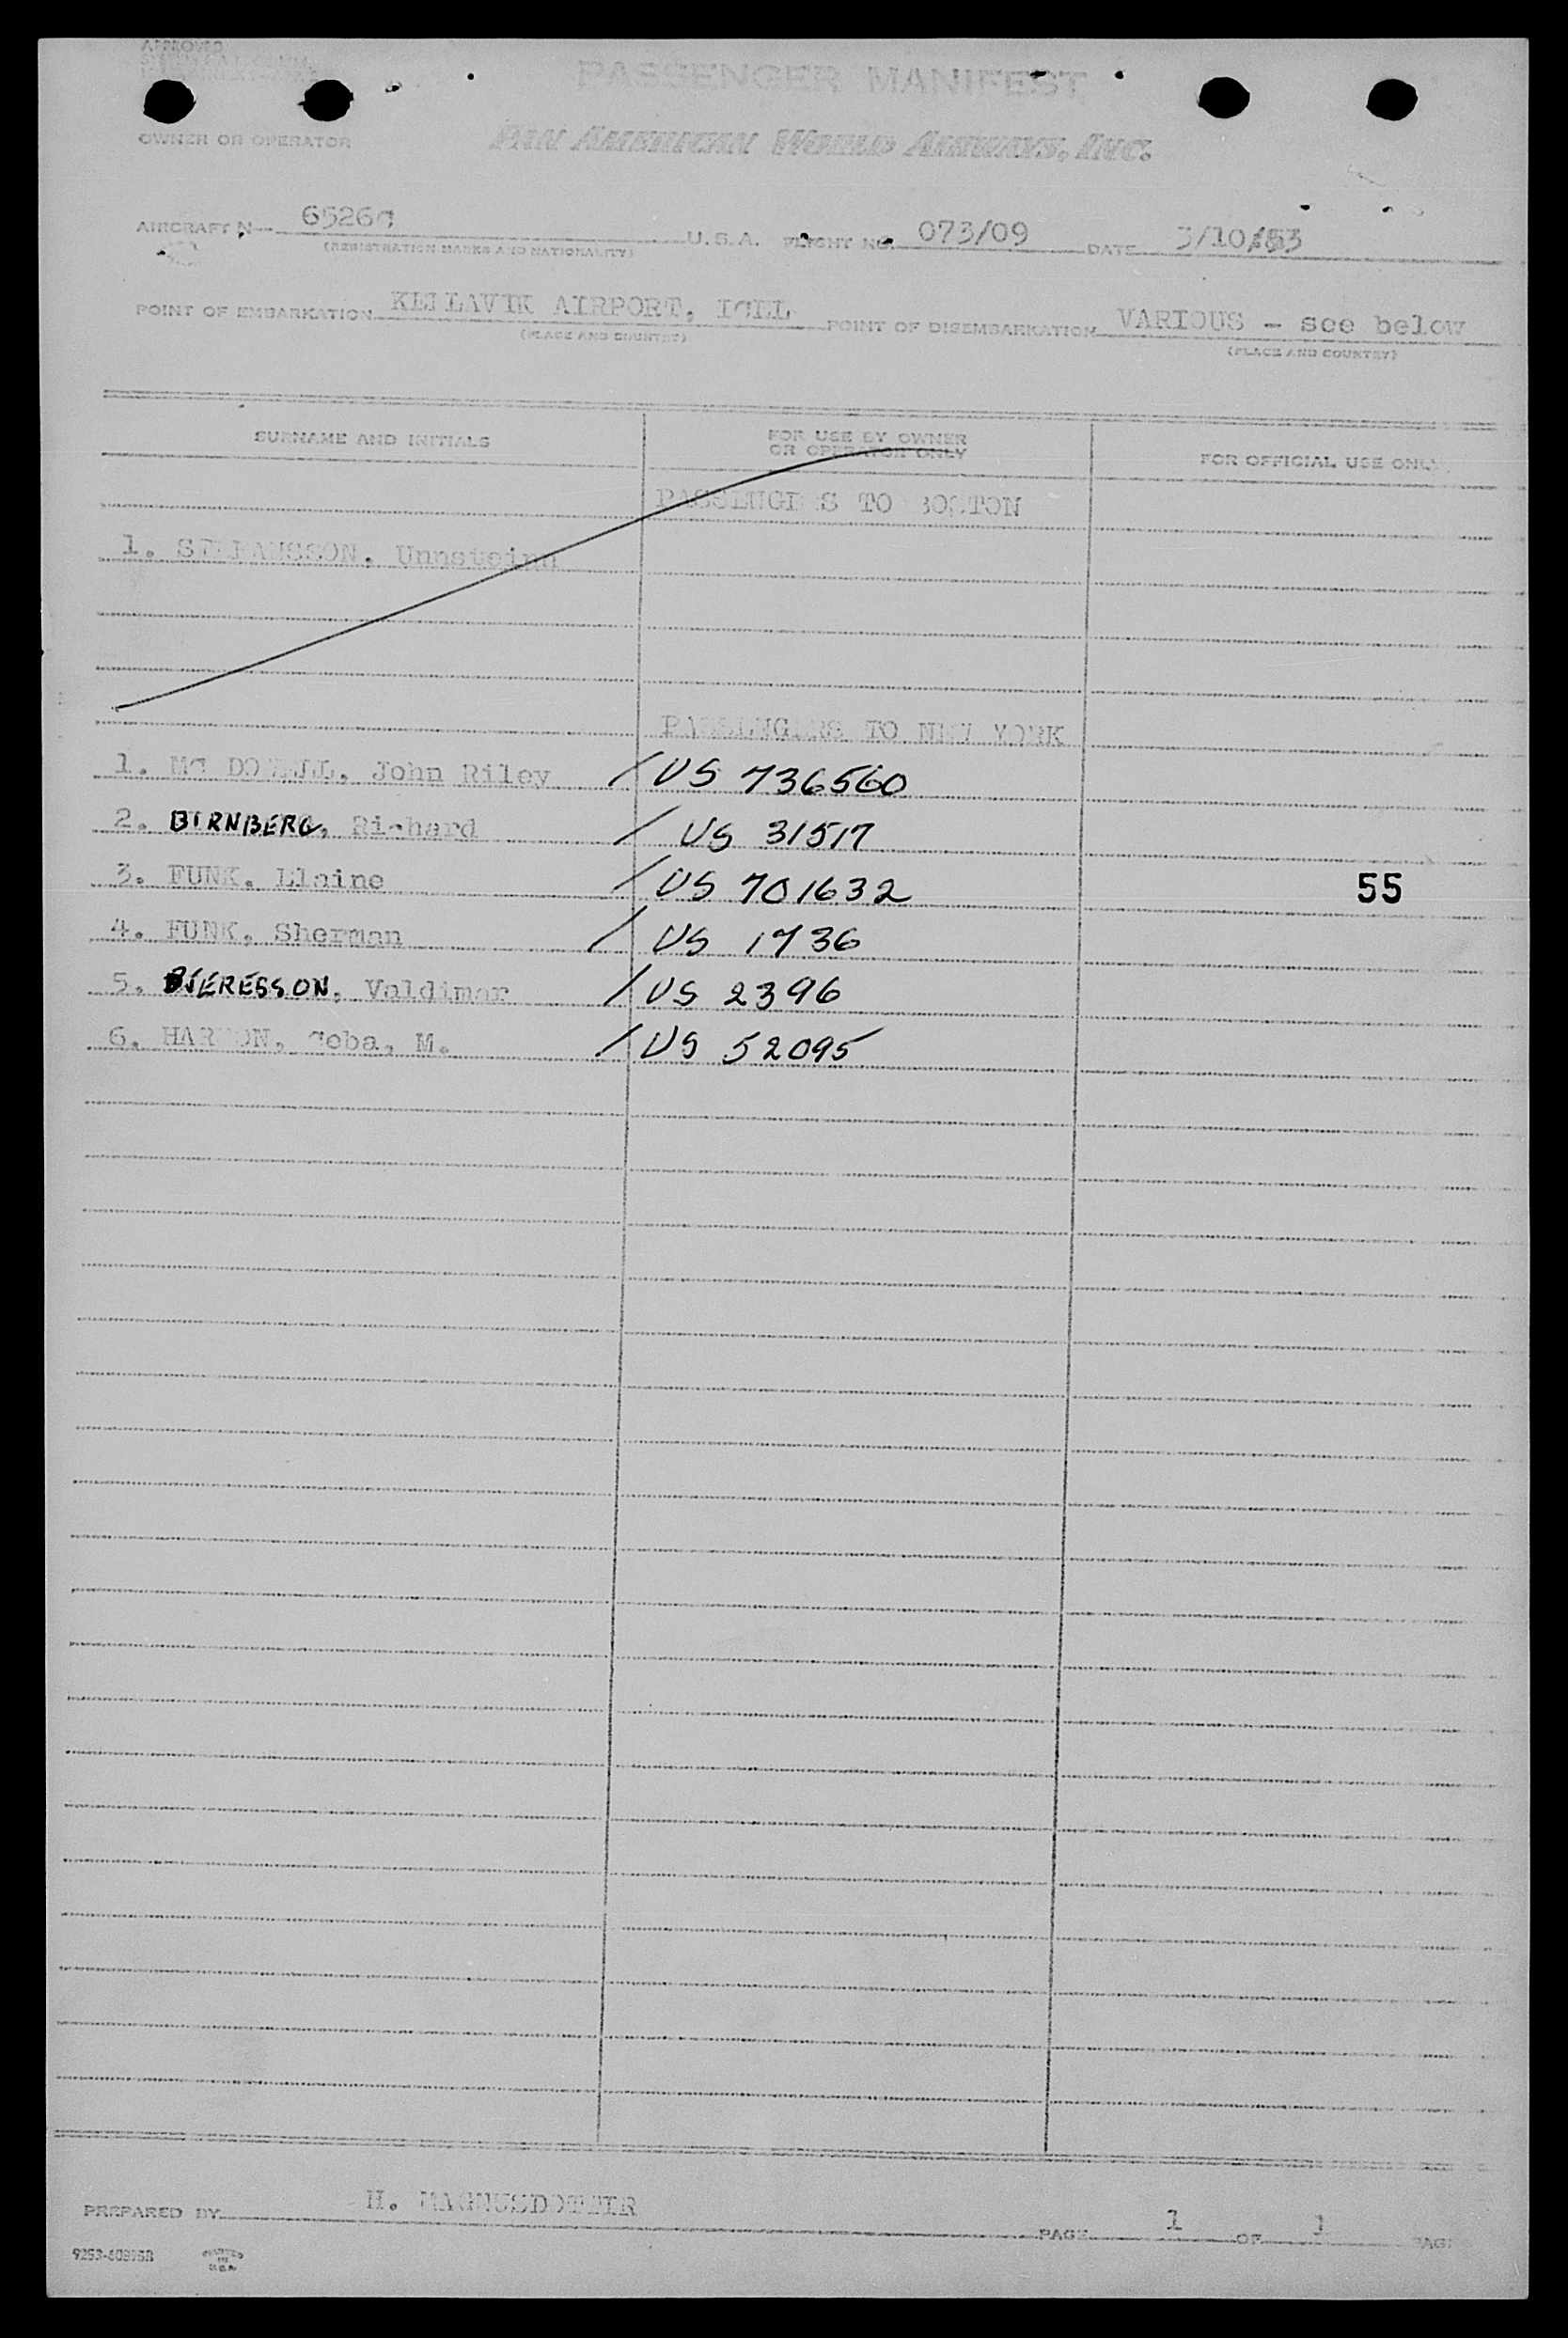 APPROVED
PASSENGER MANIFEST
OWNER OR OPERATOR PAN AMERICAN WORLD AIRWAYS, INC.
AIRCRAFT N U.S.A. FLIGHT NO. 073/09 DATE 3/10/53
(REGISTRATION MARKS AND NATIONALITY)
POINT OF EMBARKATION AIRPORT, POINT OF DISEMBARKATION VARIOUS - see below
(PLACE AND COUNTRY) (PLACE AND COUNTRY)
SURNAME AND INITIALS
FOR USE BY OWNER
OR OPERATOR ONLY
FOR OFFICIAL USE ONLY
PASSENGERS TO BOSTON
1. Unnsteinn
PASSENGERS TO NEW YORK
1. John Riley / US 736560
2. BIRNBERG, Richard / US 31517
3. FUNK, Elaine / US 701632 55
4. FUNK, Sherman / US 1736
5. Valdimar / US 2396
6. M. / US 52095
PREPARED BY H. MAGNUSDOTTIR PAGE 1 OF 1
PRINTED IN U.S.A.